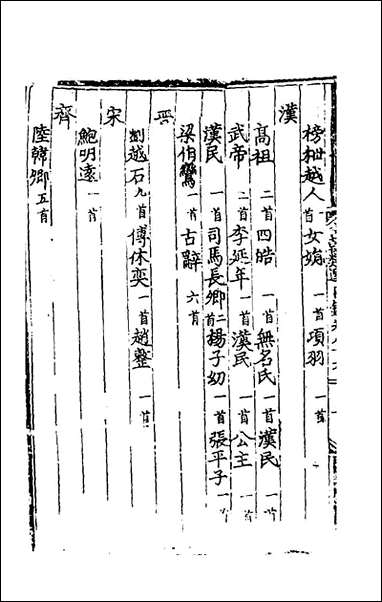 榜枻越人一首女娟一首項羽一首
漢
高祖二首四皓一首無名氏一首漢民一首
武帝二首李延年一首漢民一首公主一首
漢民一首司馬長卿二首楊子幼一首張平子一首
梁伯鸞一首古辭六首
晉
劉越石九首傅休奕一首趙整一首
宋
鮑明遠一首
齊
陸韓卿五首